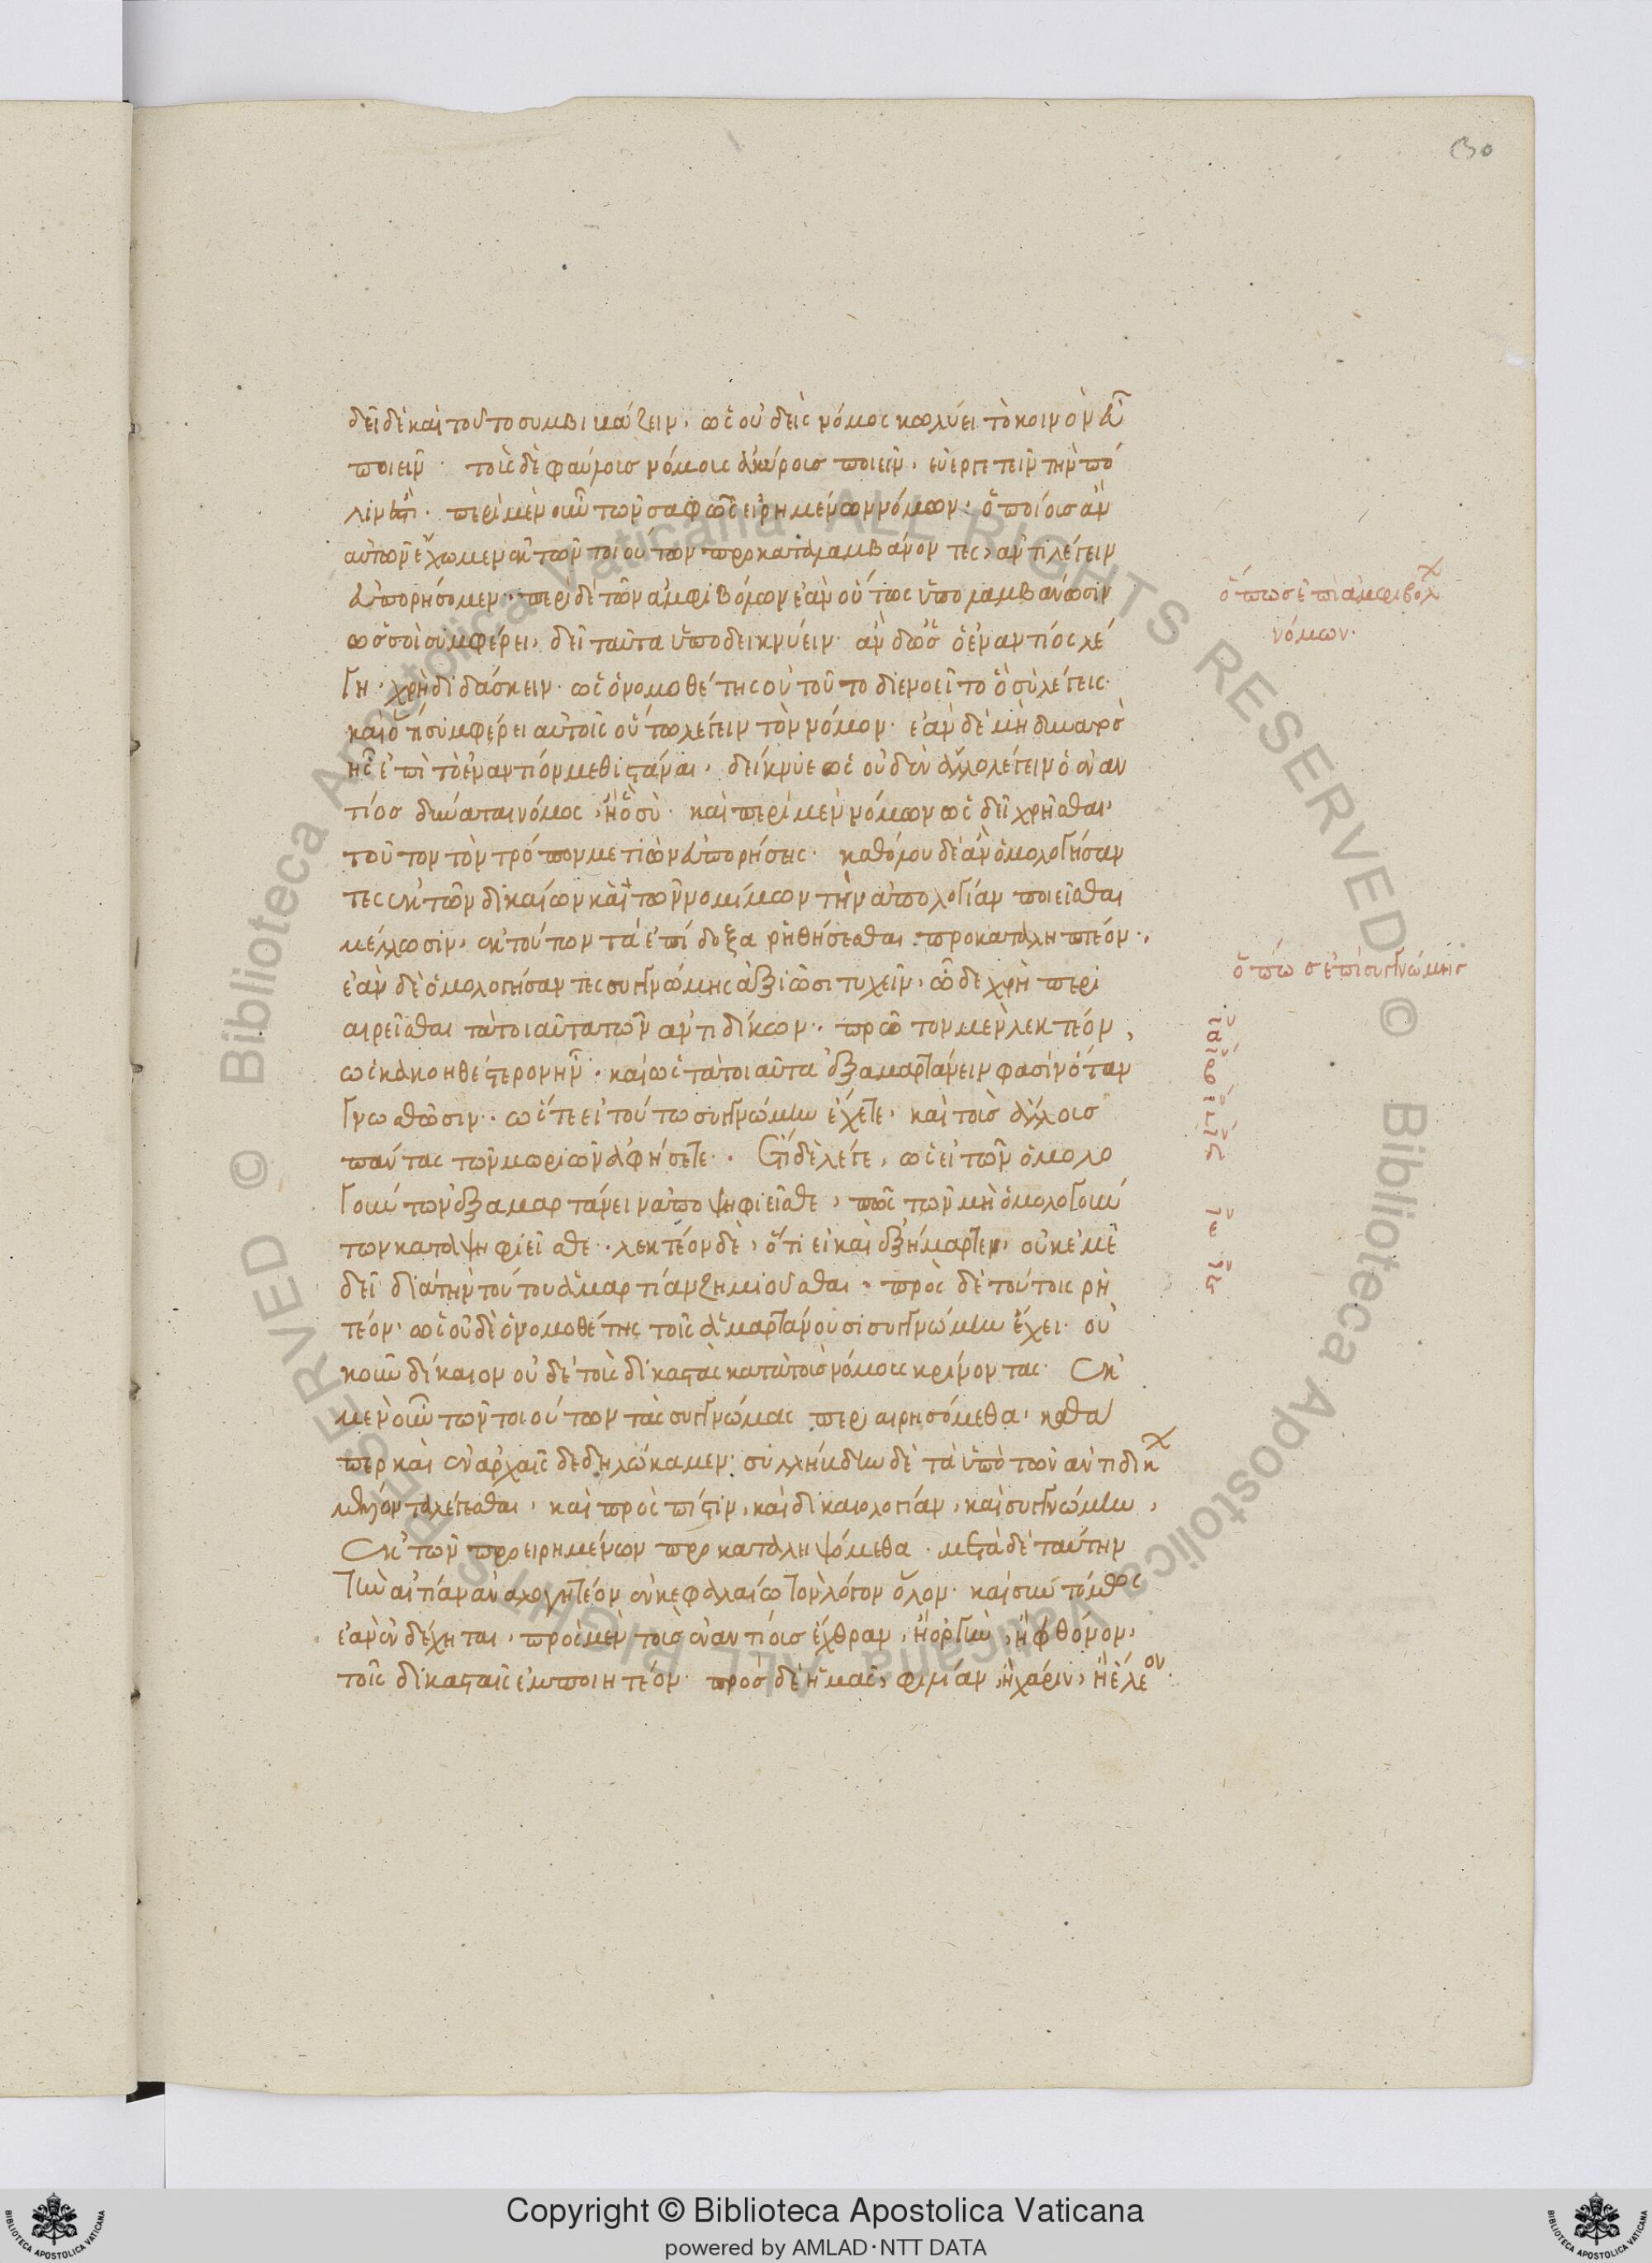 130
δεῖ δὲ καὶ τοῦτο συμβιβάζειν, ὡς οὐδεὶς νόμος κωλύει τὸ κοινὸν εὖ
ποιεῖν · τοῖς δὲ φαύλοις νόμοις ἀκύροις ποιεῖν, εὐεργετεῖν τὴν πό
λιν ἐστί · περὶ μὲν οὖν τῶν σαφῶς εἰρημένων νόμων · ὁποίοις ἂν
αὐτῶν ἔχωμεν ἐκ τῶν τοιούτων προκαταλαμβάνοντες, ἀντιλέγειν
εὐπορήσομεν · περὶ δὲ τῶν ἀμφιβόλων ἐὰν οὕτως ὑπολαμβάνωσιν
ὡς σοὶ συμφέρει, δεῖ ταῦτα ὑποδεικνύειν · ἂν δ' ὡς ὁ ἐναντίος λέ
γη · χρὴ διδάσκειν · ὡς ὁ νομοθέτης οὐ τοῦτο διενοεῖτο ὃ σὺ λέγεις ·
καὶ ὅτι συμφέρει αὐτοῖς οὕτω λέγειν τὸν νόμον · ἐὰν δὲ μὴ δυνατὸ
ἦς ἐπὶ τὸ ἐναντίον μεθιστάναι, δείκνυε ὡς οὐδὲν ἄλλο λέγειν ὁ ἐναν
τίος δύναται νόμος, ἢ ὃ σύ · καὶ περὶ μὲν νόμων ὡς δεῖ χρῆσθαι,
τοῦτον τὸν τρόπον μετιὼν εὐπορήσεις · καθόλου δὲ ἂν ὁμολογήσαν
τες ἐκ τῶν δικαίων καὶ τῶν νομίμων τὴν ἀπολογίαν ποιεῖσθαι
μέλλωσιν, ἐκ τούτων τὰ ἐπίδοξα ῥηθήσεσθαι προκαταληπτέον ·
ἐὰν δὲ ὁμολογήσαντες συγγνώμης ἀξιῶσι τυχεῖν, ὧδε χρὴ περι
αιρεῖσθαι τὰ τοιαῦτα τῶν ἀντιδίκων · πρῶτον μὲν λεκτέον,
ὡς κακοηθέστερον ἦν · καὶ ὡς τὰ τοιαῦτα ἐξαμαρτάνειν φασὶν ὅταν
γνωσθῶσιν · ὥστε εἰ τούτω συγγνώμην ἔχετε, καὶ τοῖς ἄλλοις
πάντας τῶν μωριῶν ἀφήσετε · ἔτι δὲ λέγε, ὡς εἰ τῶν ὁμολο
γούντων ἐξαμαρτάνειν ἀποψηφιεῖσθε, πῶς τῶν μὴ ὁμολογούν
των καταψηφιεῖσθε · λεκτέον δὲ, ὅτι εἰ καὶ ἐξήμαρτεν, οὐκ ἐμὲ
δεῖ διὰ τὴν τούτου ἁμαρτίαν ζημιοῦσθαι · πρὸς δὲ τούτοις ῥη
τέον, ὡς οὐδὲ ὁ νομοθέτης τοῖς ἁμαρτάνουσι συγγνώμην ἔχει · οὐ
κοῦν δίκαιον οὐδὲ τοὺς δικαστὰς κατὰ τοὺς νόμους κρίνοντας · Ἐκ
μὲν οὖν τῶν τοιούτων τὰς συγγνώμας περιαιρησόμεθα, καθά
περ καὶ ἐν ἀρχαῖς δεδηλώκαμεν · συλλήβδην δὲ τὰ ὑπὸ τῶν ἀντιδίκ
μέλλοντα λέγεσθαι, καὶ πρὸς πίστιν, καὶ δικαιολογίαν, καὶ συγγνώμην,
Ἐκ τῶν προειρημένων προκαταληψόμεθα · μετὰ δὲ ταύτην
τὴν αἰτίαν ἀναλογητέον ἐν κεφαλαίω τὸν λόγον ὅλον · καὶ συντόμως
ἐὰν ἐνδέχηται, πρὸς μὲν τοὺς ἐναντίους ἔχθραν, ἢ ὀργὴν, ἢ φθόνον,
τοῖς δικασταῖς ἐμποιητέον · πρὸς δὲ ἡμᾶς, φιλίαν, ἢ χάριν, ἢ ἔλεον ·
ὅπως ἐπὶ ἀμφιβόλ
νόμων ·
ὅπως ἐπὶ συγγνώμης
Copyright © Biblioteca Apostolica Vaticana
powered by AMLAD·NTT DATA
BIBLIOTECA APOSTOLICA VATICANA
BIBLIOTECA APOSTOLICA VATICANA
© Biblioteca Apostolica Vaticana ALL RIGHTS RESERVED © Biblioteca Apostolica Vaticana ALL RIGHTS RESERVED